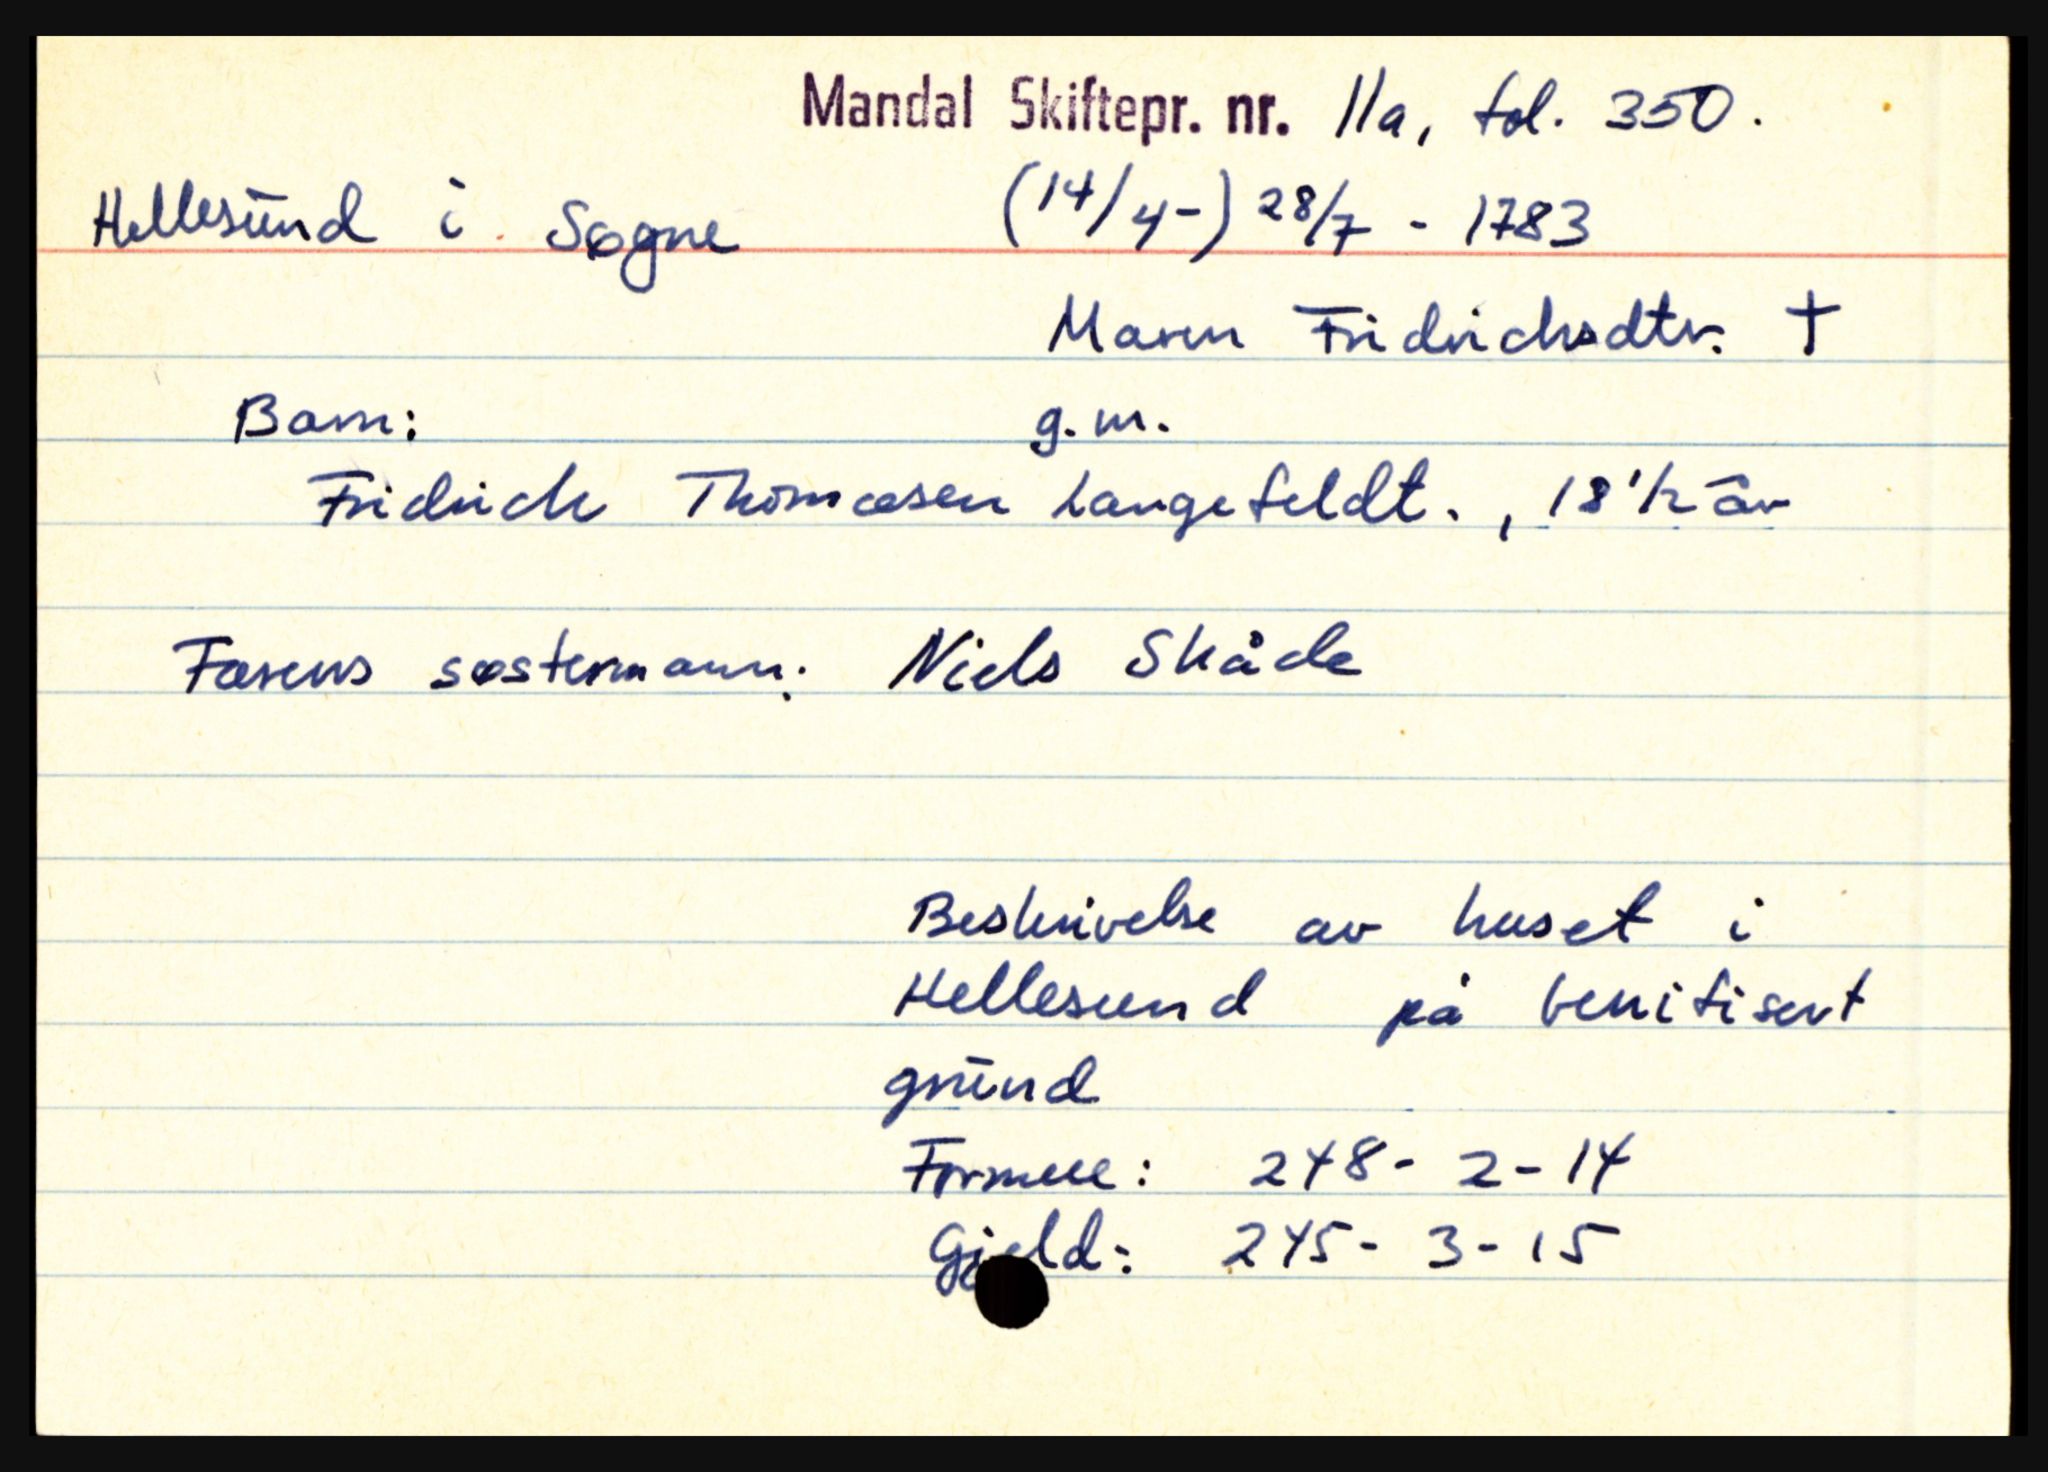 Mandal Skiftepr. nr. 11a, fol. 350.
Hellesund i Søgne (14/4-) 28/7 - 1783
Maren Fridrichsdtr. †
Barn: g.m.
Fridrich Thomæsen Langefeldt., 18 1/2 år
Farens søstermann: Niels Skåde
Beskrivelse av huset i
Hellesund på benifisert
grund
Formue: 248 - 2 - 14
Gjeld: 245 - 3 - 15